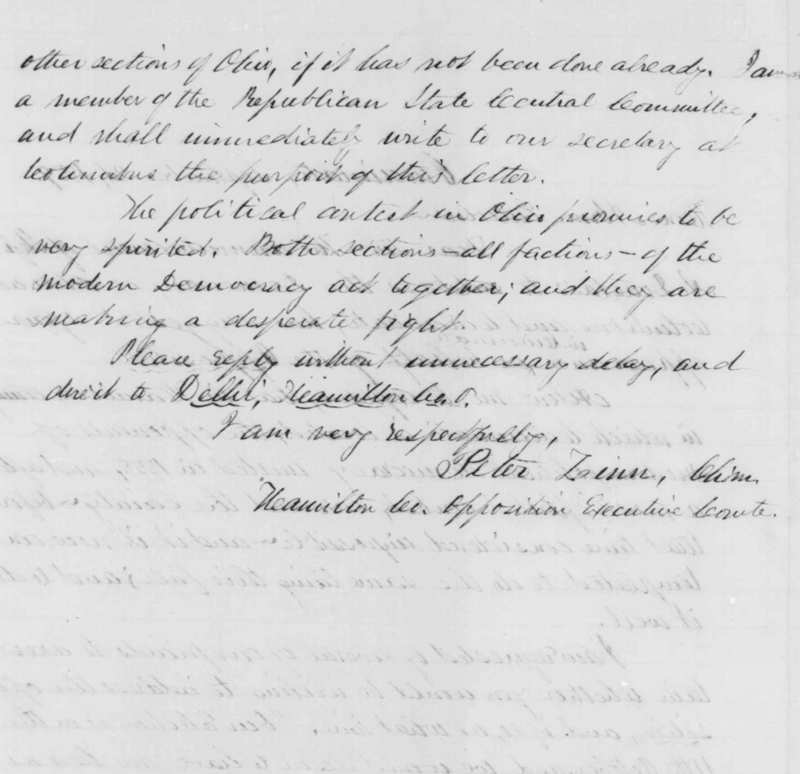 other sections of Ohio, if it has not been done already. I am
a member of the Republican State Central Committee,
and shall immediately write to our secretary at
Columbus the purport of this letter.
The political contest in Ohio promises to be
very spirited. Both sections—all factions—of the
modern Democracy act together; and they are
making a desperate fight
Please reply without unnecessary delay, and
direct to Delhi, Hamilton Co. O.
I am very respectfully,
Peter Zinn, Chim.
Hamilton Co. Opposition Executive Comte.